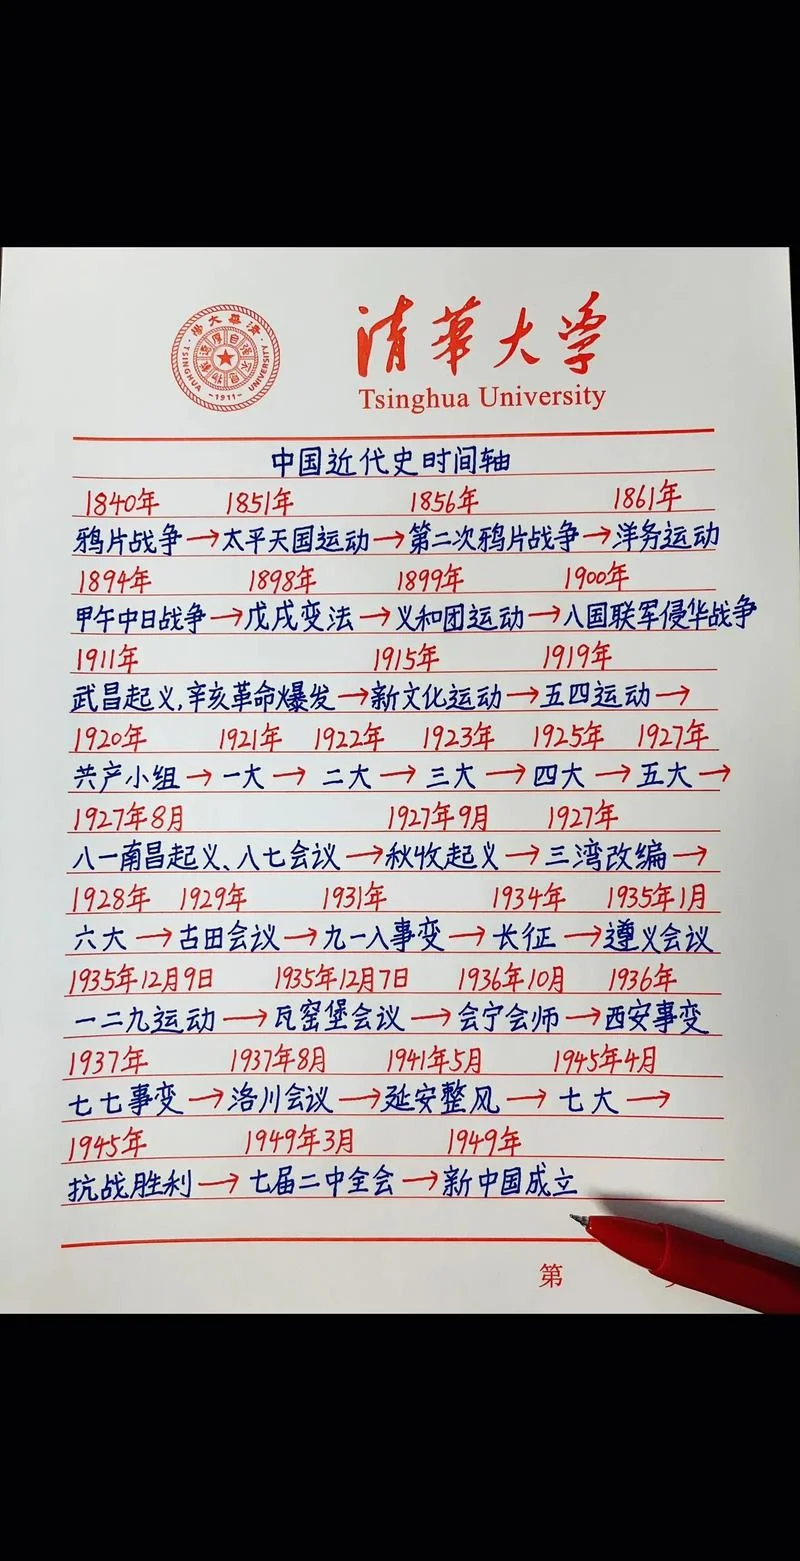 清華大学
Tsinghua University
清華大學
TSINGHUA UNIVERSITY
-1911-
中国近代史时间轴
1840年 1851年 1856年 1861年
鸦片战争→太平天国运动→第二次鸦片战争→洋务运动
1894年 1898年 1899年 1900年
甲午中日战争→戊戌变法→义和团运动→八国联军侵华战争
1911年 1915年 1919年
武昌起义,辛亥革命爆发→新文化运动→五四运动→
1920年 1921年 1922年 1923年 1925年 1927年
共产小组→一大→二大→三大→四大→五大→
1927年8月 1927年9月 1927年
八一南昌起义、八七会议→秋收起义→三湾改编→
1928年 1929年 1931年 1934年 1935年1月
六大→古田会议→九一八事变→长征→遵义会议
1935年12月9日 1935年12月7日 1936年10月 1936年
一二九运动→瓦窑堡会议→会宁会师→西安事变
1937年 1937年8月 1941年5月 1945年4月
七七事变→洛川会议→延安整风→七大→
1945年 1949年3月 1949年
抗战胜利→七届二中全会→新中国成立
第